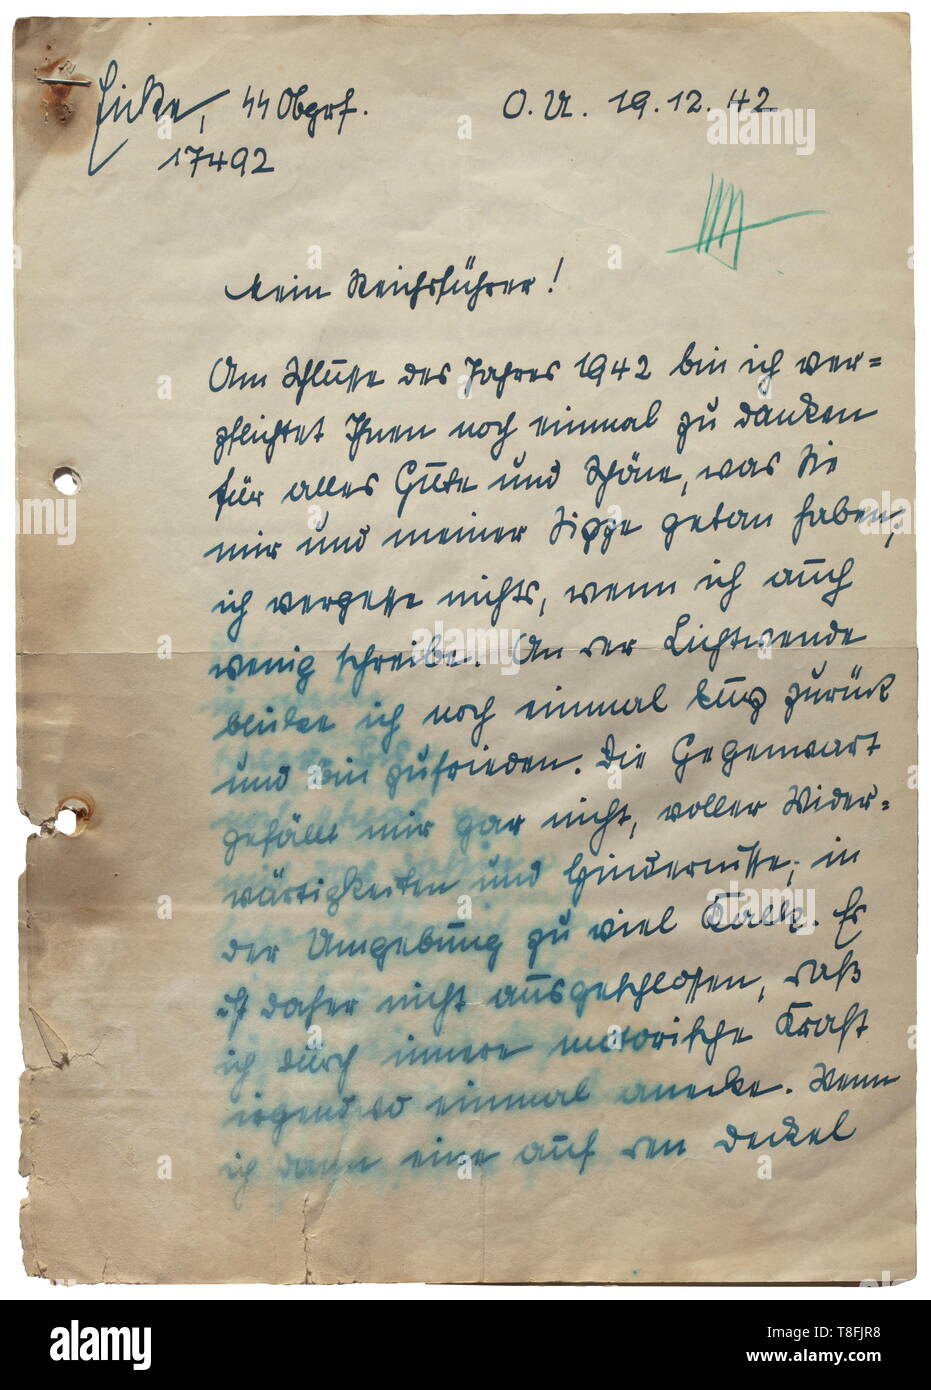 Eicke, SS Obgrf.
O.U. 19.12.42
17492
Mein Reichsführer!
Am Schlusse des Jahres 1942 bin ich ver=
pflichtet Ihnen noch einmal zu danken
für alles Gute und Schöne, was Sie
mir und meiner Sippe getan haben;
ich vergesse nichts, wenn ich auch
wenig schreibe. An der Lichtwende
blicke ich noch einmal kurz zurück
und bin zufrieden. Die Gegenwart
gefällt mir gar nicht, voller Wider=
wärtigkeiten und Hindernisse; in
der Umgebung zu viel Kalk. Es
ist daher nicht ausgeschlossen, daß
ich durch innere motorische Kraft
irgendwo einmal anecke. Wenn
ich dann eine auf den Deckel
alamy
Image ID: T8FJR8
www.alamy.com